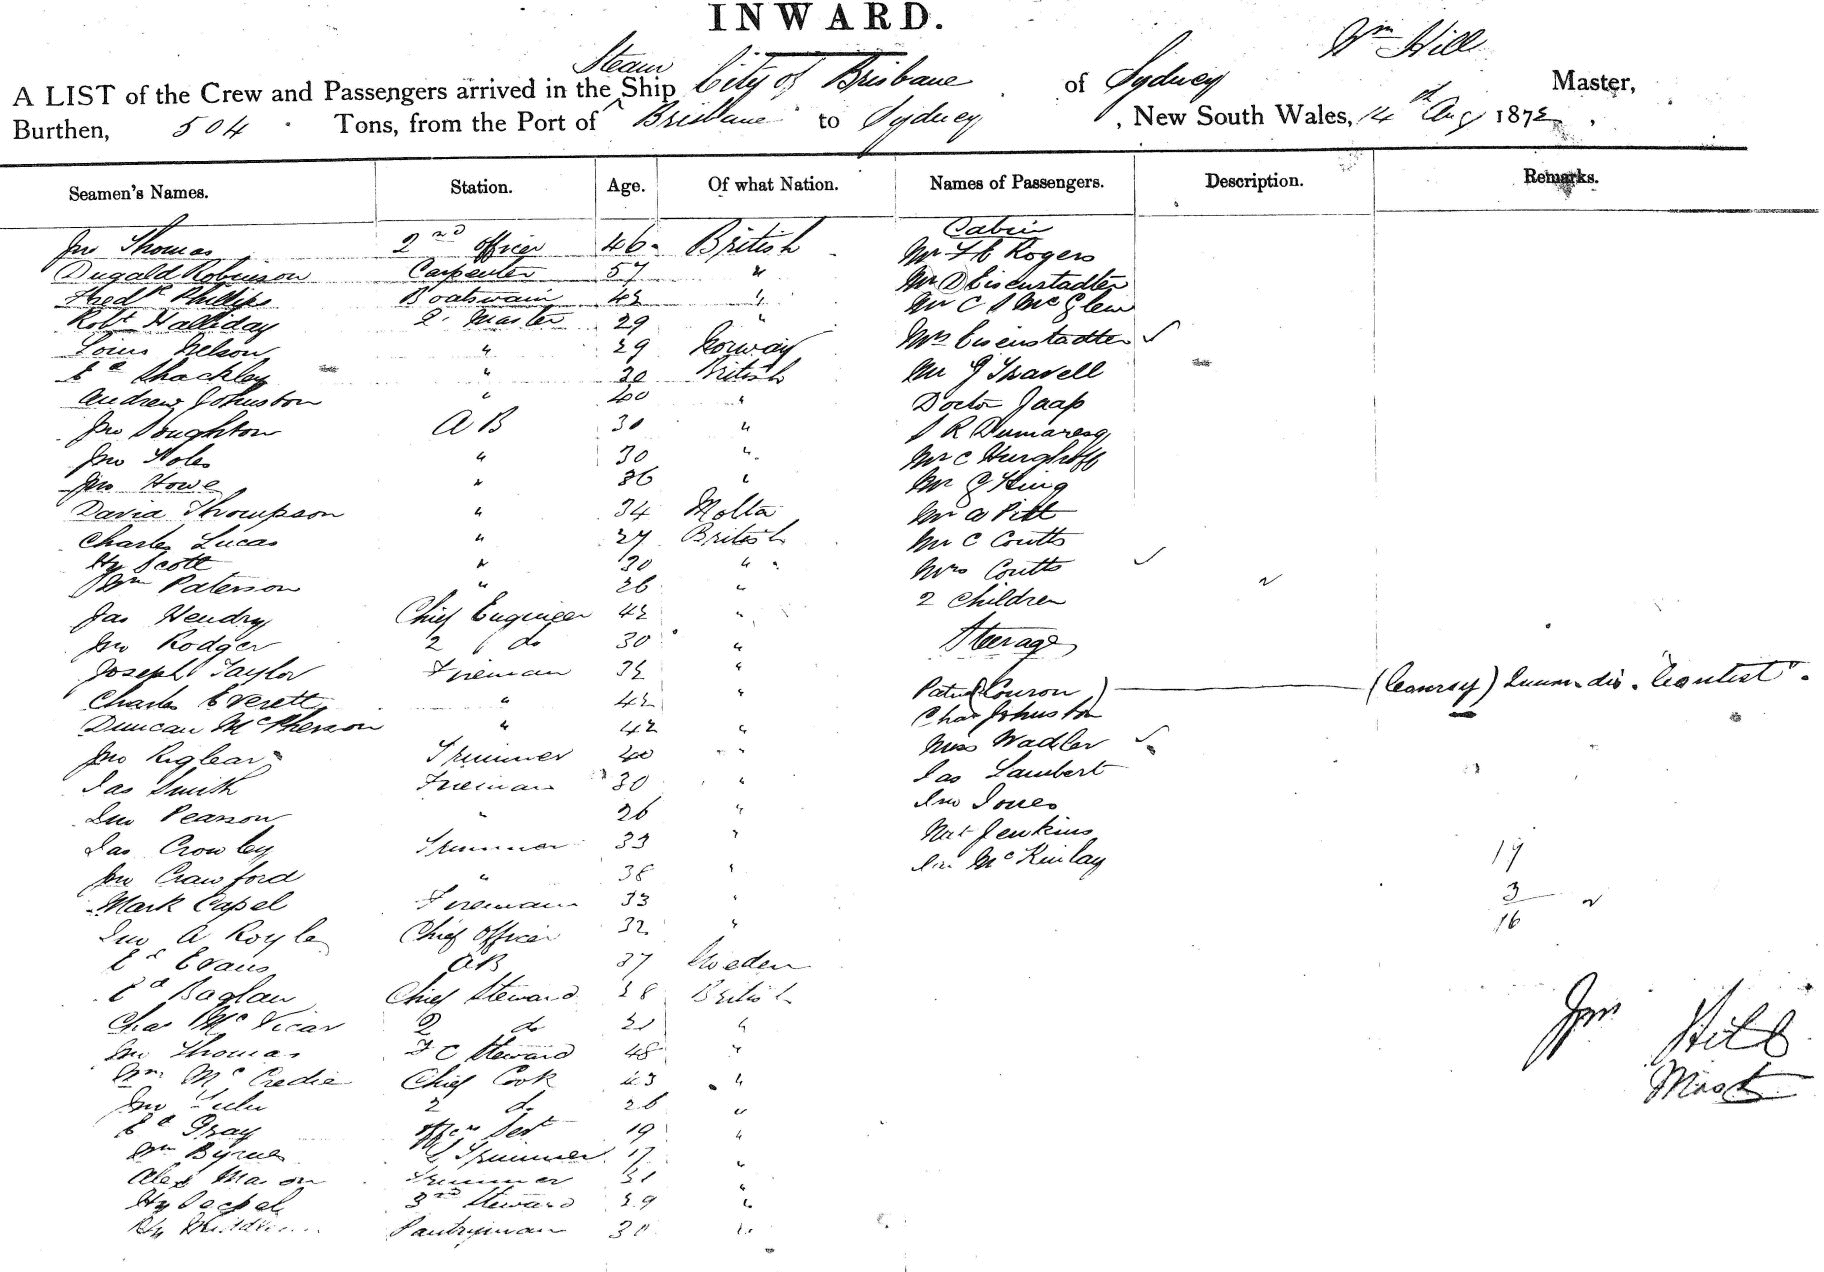 INWARD.
Wm Hill
Steam
A LIST of the Crew and Passengers arrived in the Ship City of Brisbane of Sydney Master,
Burthen, 504 Tons, from the Port of Brisbane to Sydney, New South Wales, 14th Aug 1872.
Seamen's Names. Station. Age. Of what Nation. Names of Passengers. Description. Remarks.
Cabin
Jno Thomas 2nd officer 46 British Mr F E Rogers
Dugald Robinson Carpenter 57 " Mr D Eisenstadter
Fredk Phillips Boatswain 42 " Mr C S McGlew
Robt Halliday 2 Master 29 " Mrs Eisenstadter
Louis Nelson " 29 Norway Mr J Travell
Ed Shackley " 30 British Doctor Jaap
Andrew Johnston " 40 " S R Dumaresq
Jno Soughton AB 30 " Mr C Hurghoff
Jno Noles " 30 " Mr G King
Jno Howe " 36 " Mr A Pitt
David Thompson " 34 Malta Mr C Coutts
Charles Lucas " 27 British Mrs Coutts
Hy Scott " 30 " 2 Children
Wm Paterson " 26 "
Jas Hendry Chief Engineer 42 " Steerage
Jno Rodger 2 do 30 "
Joseph Taylor Fireman 32 " Patrk (Couron) (Conroy)
Charles Everett " 42 " Chas Johnston
Duncan McPherson " 42 " Miss Wadler
Jno Riglear Trimmer 40 " Jas Lambert
Jas Smith Fireman 30 " Jno Jones
Jno Pearson " 26 " Nat Jenkins
Jas Crowley Trimmer 33 " Jno McKinlay
Jno Crawford " 38 "
Mark Capel Fireman 33 "
Jno A Royle Chief Officer 32 "
Ed Evans AB 37 Sweden
Ed Baglan Chief Steward 28 British
Chas McVicar 2 do 21 "
Jno Thomas F C Steward 48 "
Wm McCredie Chief Cook 43 "
Jno 2 do 26 "
Ed Gray Officers Sert 19 "
Wm Byrnes Trimmer 17 "
Alex Mason Trimmer 31 "
Hy 3rd Steward 29 "
Hy Pantryman 30 "
19
3
16
Jno Hill
Mast